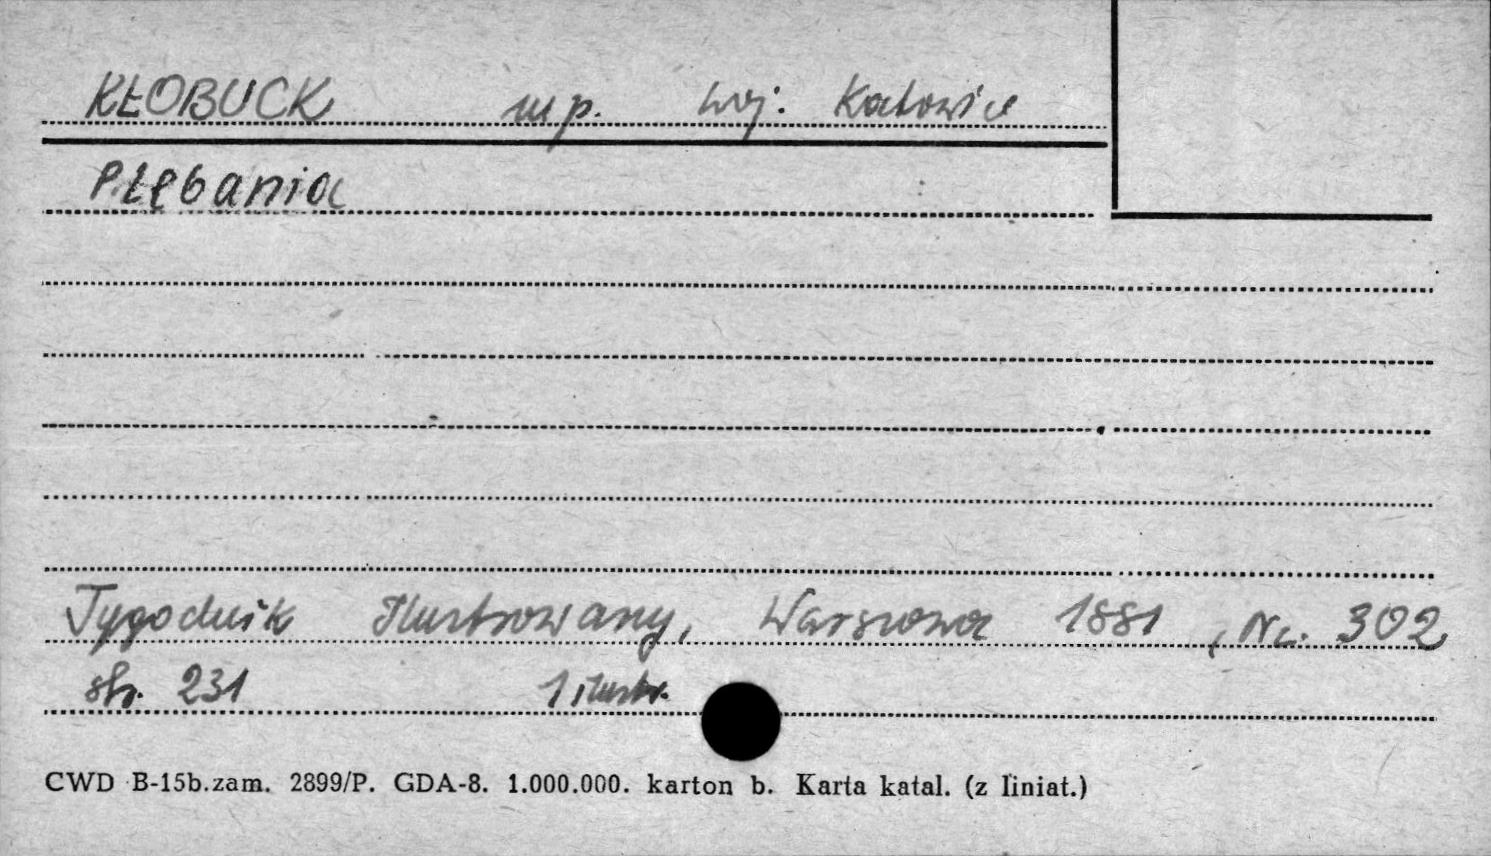 KŁOBUCK mp. woj. Katowice
PŁębania
Tygodnik Ilustrowany, Warszawa 1881, Nr. 302
str. 231 1 ilustr.
CWD B-15b.zam. 2899/P. GDA-8. 1.000.000. karton b. Karta katal. (z liniat.)